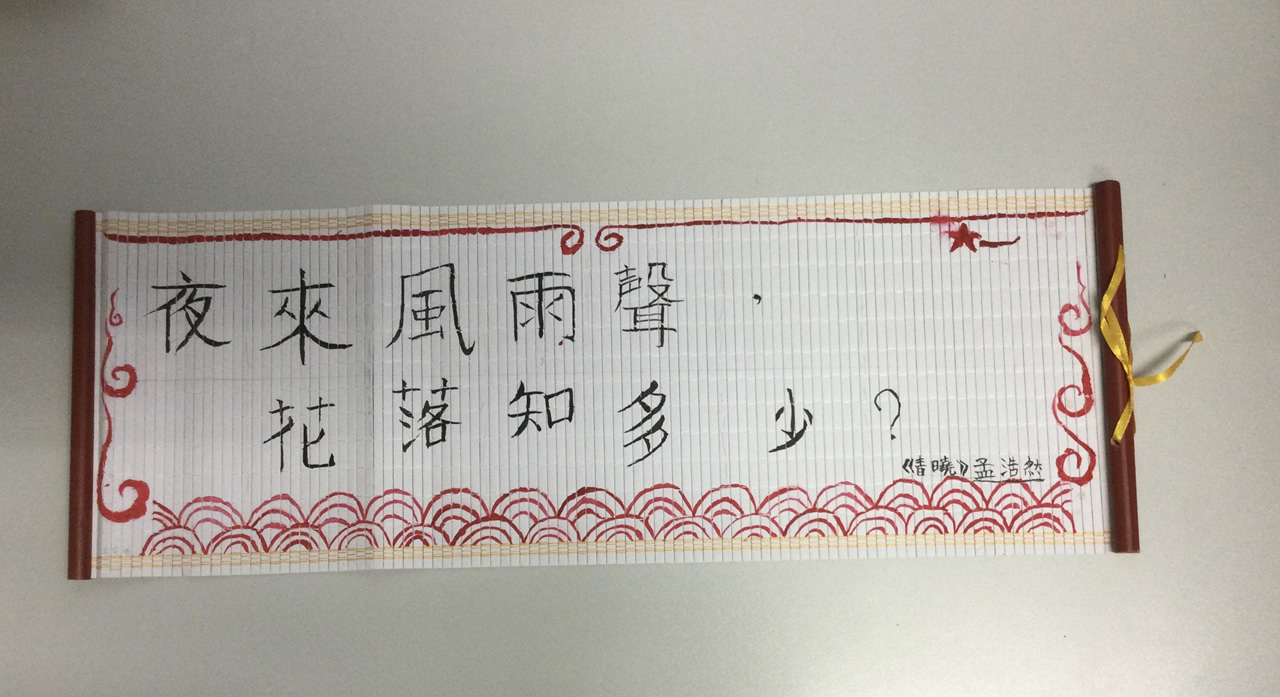 夜來風雨聲，
花落知多少？
《曉》孟浩然